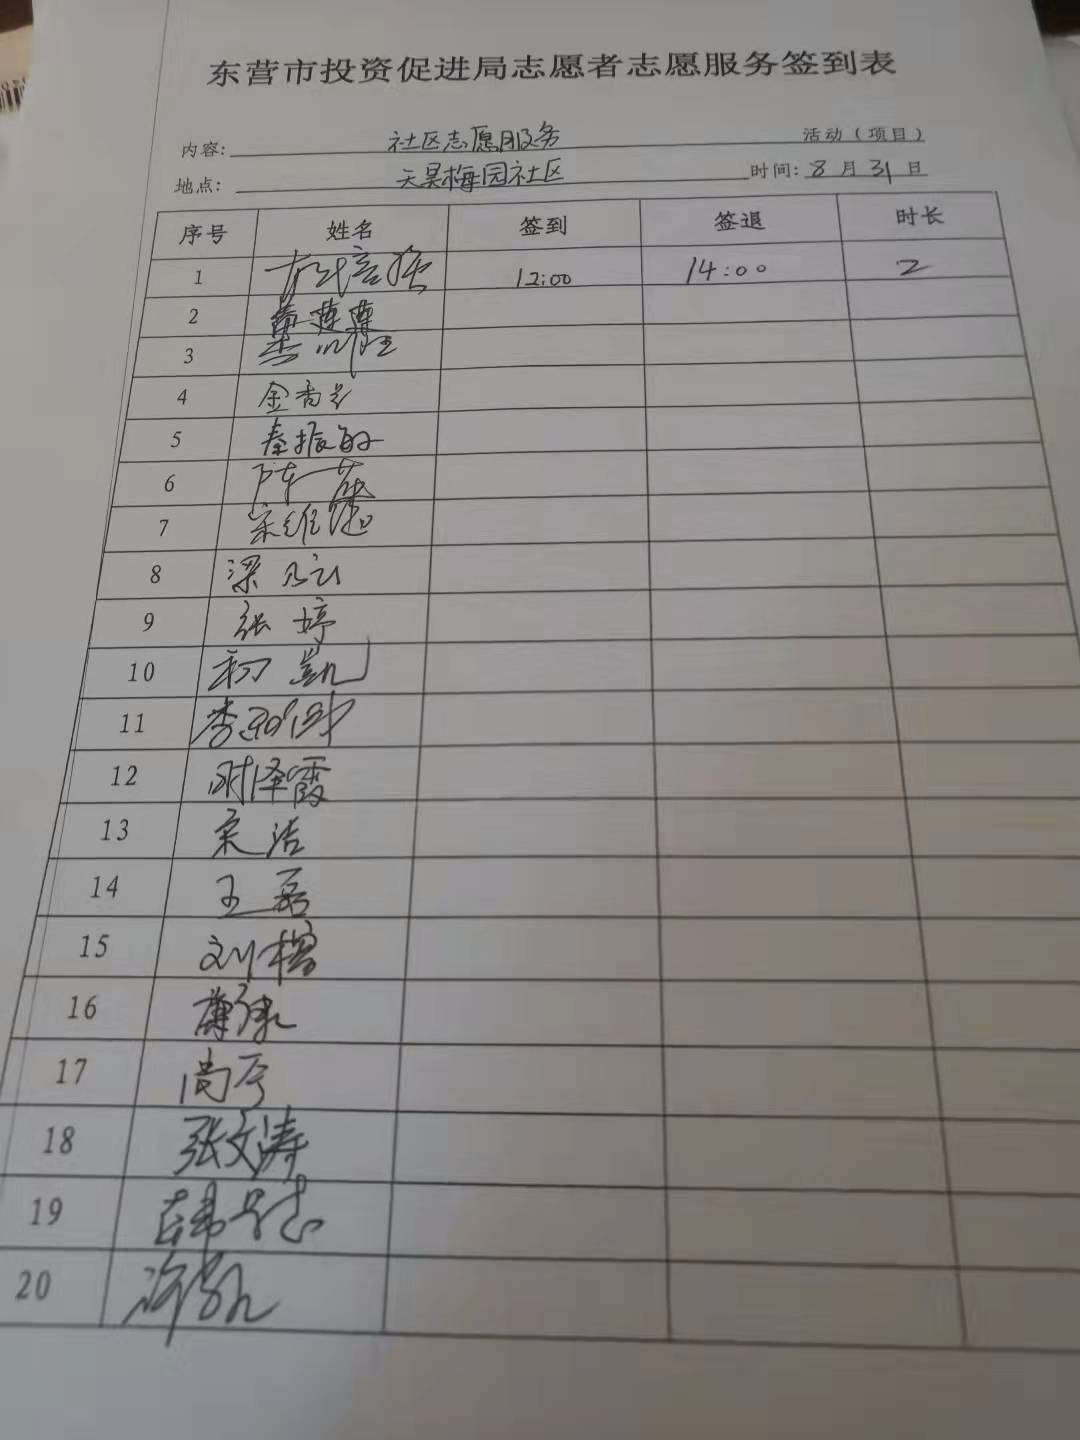 东营市投资促进局志愿者志愿服务签到表
内容: 社区志愿服务 活动（项目）
地点: 天昊梅园社区 时间: 8月31日
序号 姓名 签到 签退 时长
1 12:00 14:00 2
2
3
4 金秀
5 秦振
6 陈
7 宋维超
8 梁
9 张婷
10 初凯
11 李
12 时泽霞
13 宋洁
14 王磊
15 刘榕
16
17 尚
18 张文涛
19 韩
20 许凯